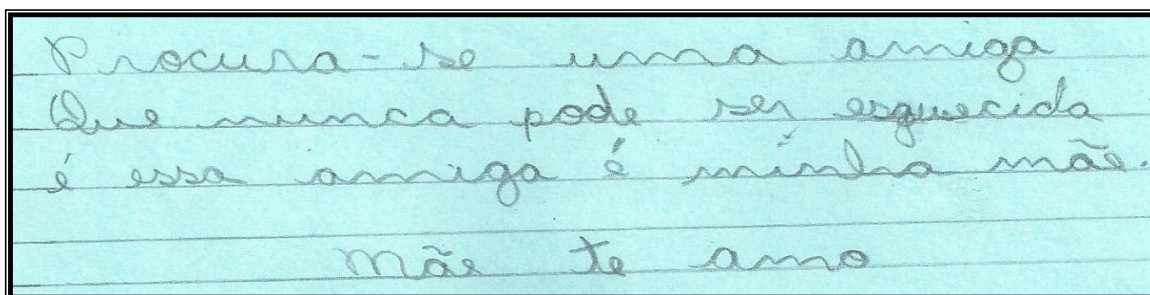 Procura-se uma amiga
Que nunca pode ser esquecida
é essa amiga é minha mãe.
Mãe te amo